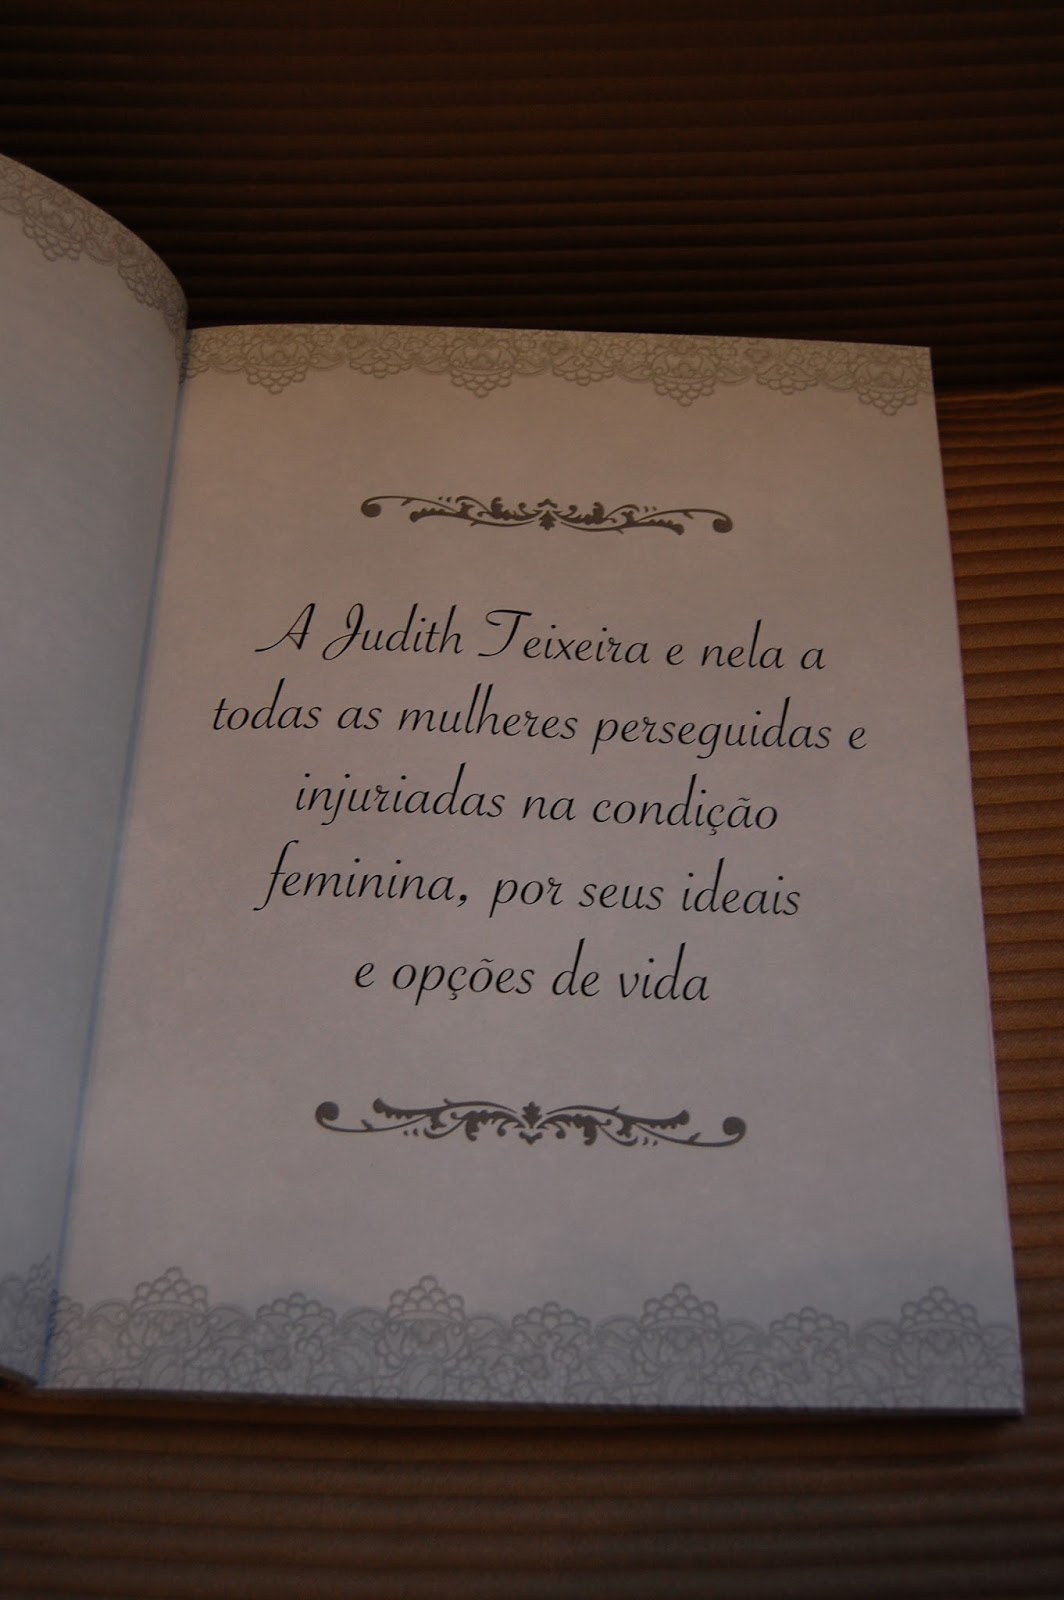 A Judith Teixeira e nela a
todas as mulheres perseguidas e
injuriadas na condição
feminina, por seus ideais
e opções de vida